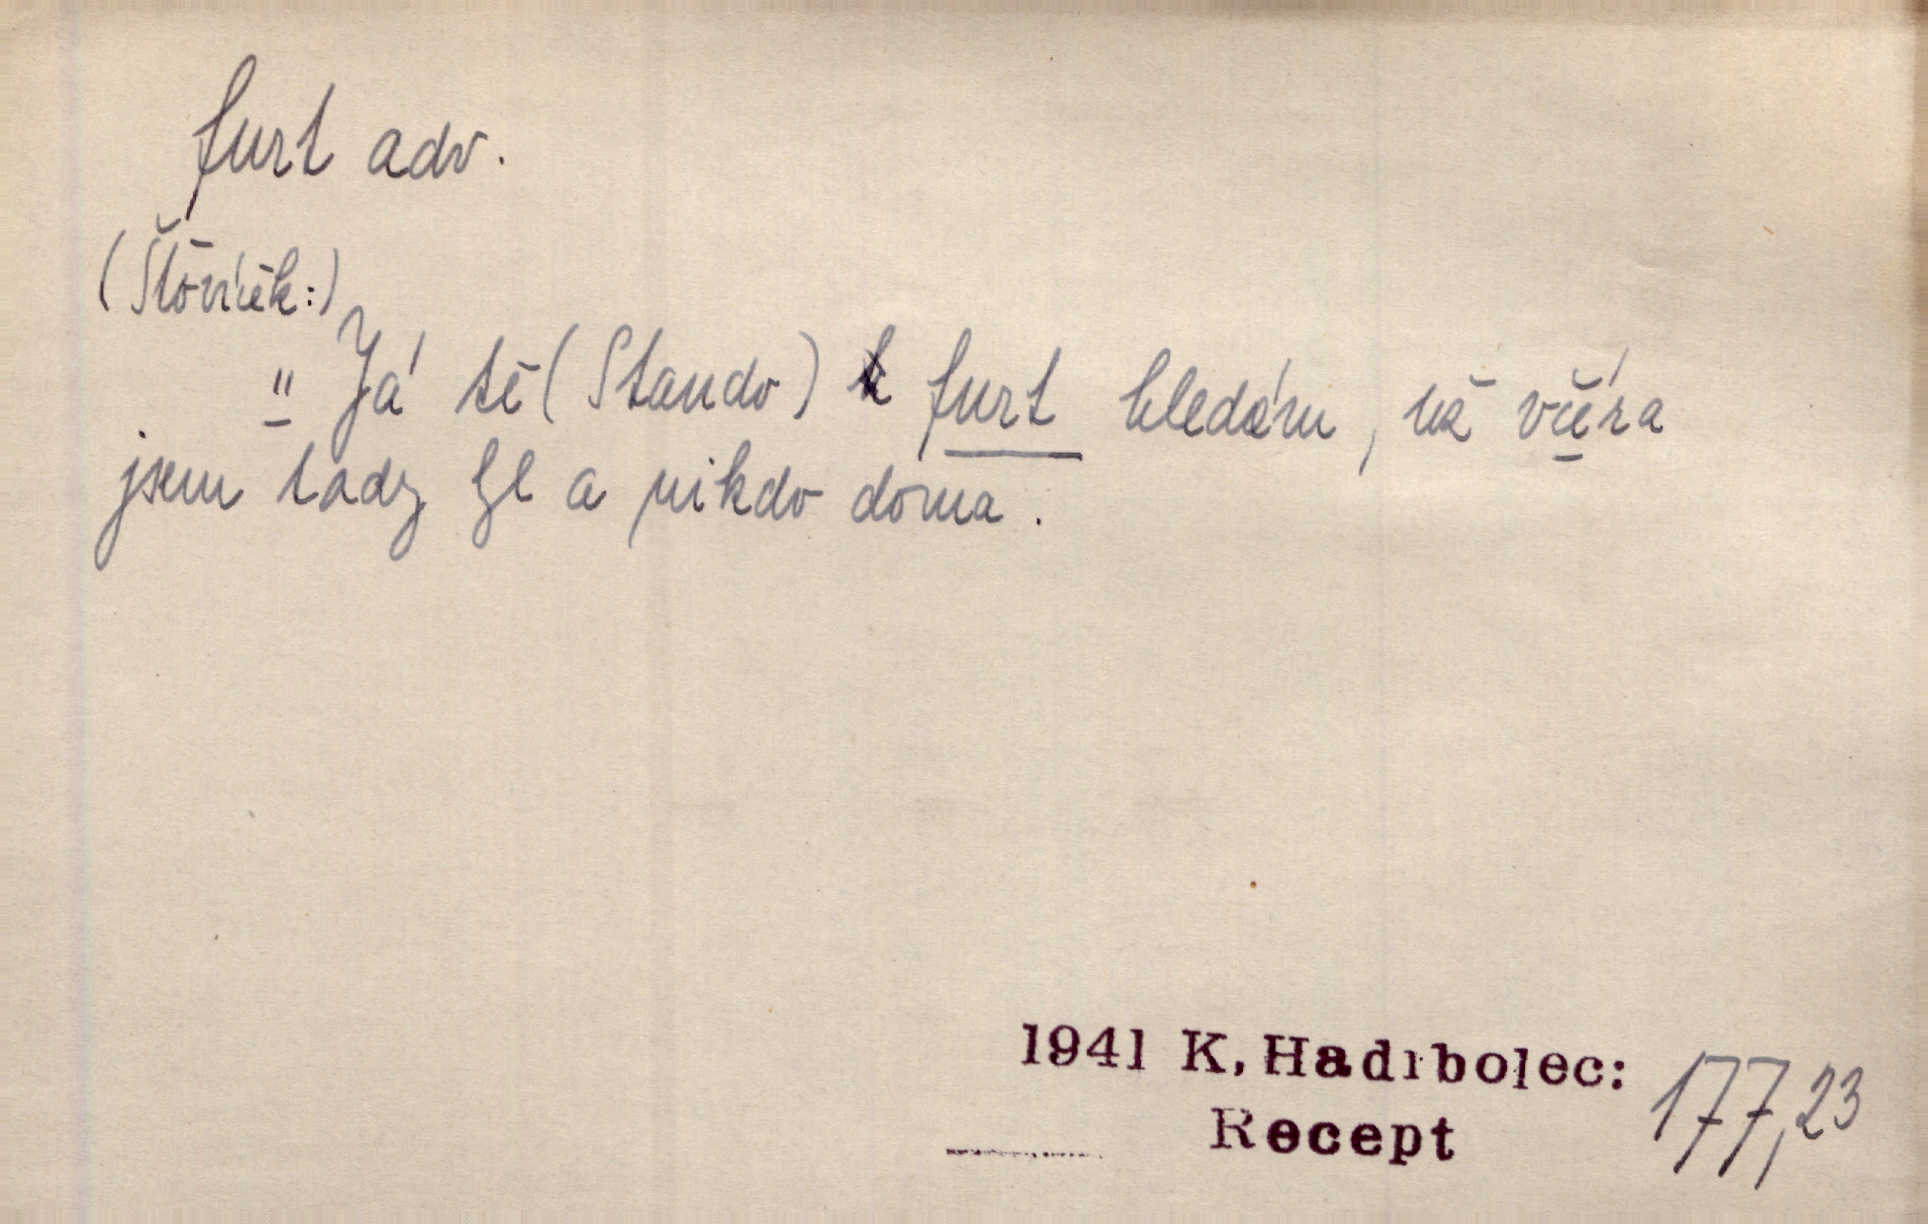 furt adv.
(Štěvíček:)
" Já tě (Stando) furt hledám, už včéra
jsem tady byl a nikdo doma.
1941 K. Hadrbolec: 177,23
Recept